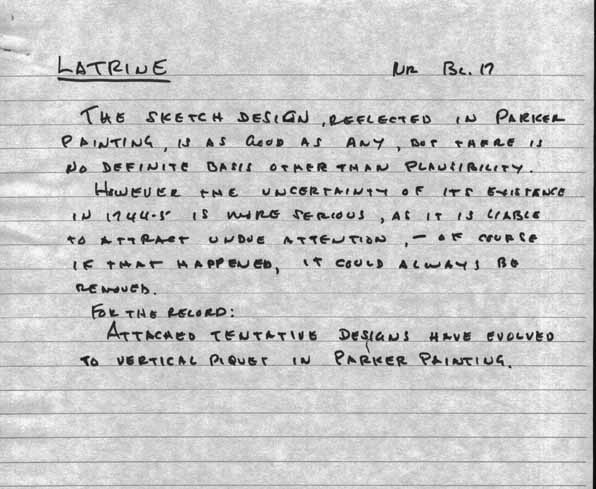 LATRINE NR BL. 17
THE SKETCH DESIGN, REFLECTED IN PARKER
PAINTING, IS AS GOOD AS ANY, BUT THERE IS
NO DEFINITE BASIS OTHER THAN PLAUSIBILITY.
HOWEVER THE UNCERTAINTY OF ITS EXISTENCE
IN 1744-5 IS MORE SERIOUS, AS IT IS LIABLE
TO ATTRACT UNDUE ATTENTION, - OF COURSE
IF THAT HAPPENED, IT COULD ALWAYS BE
REMOVED.
FOR THE RECORD:
ATTACHED TENTATIVE DESIGNS HAVE EVOLVED
TO VERTICAL PIQUET IN PARKER PAINTING.